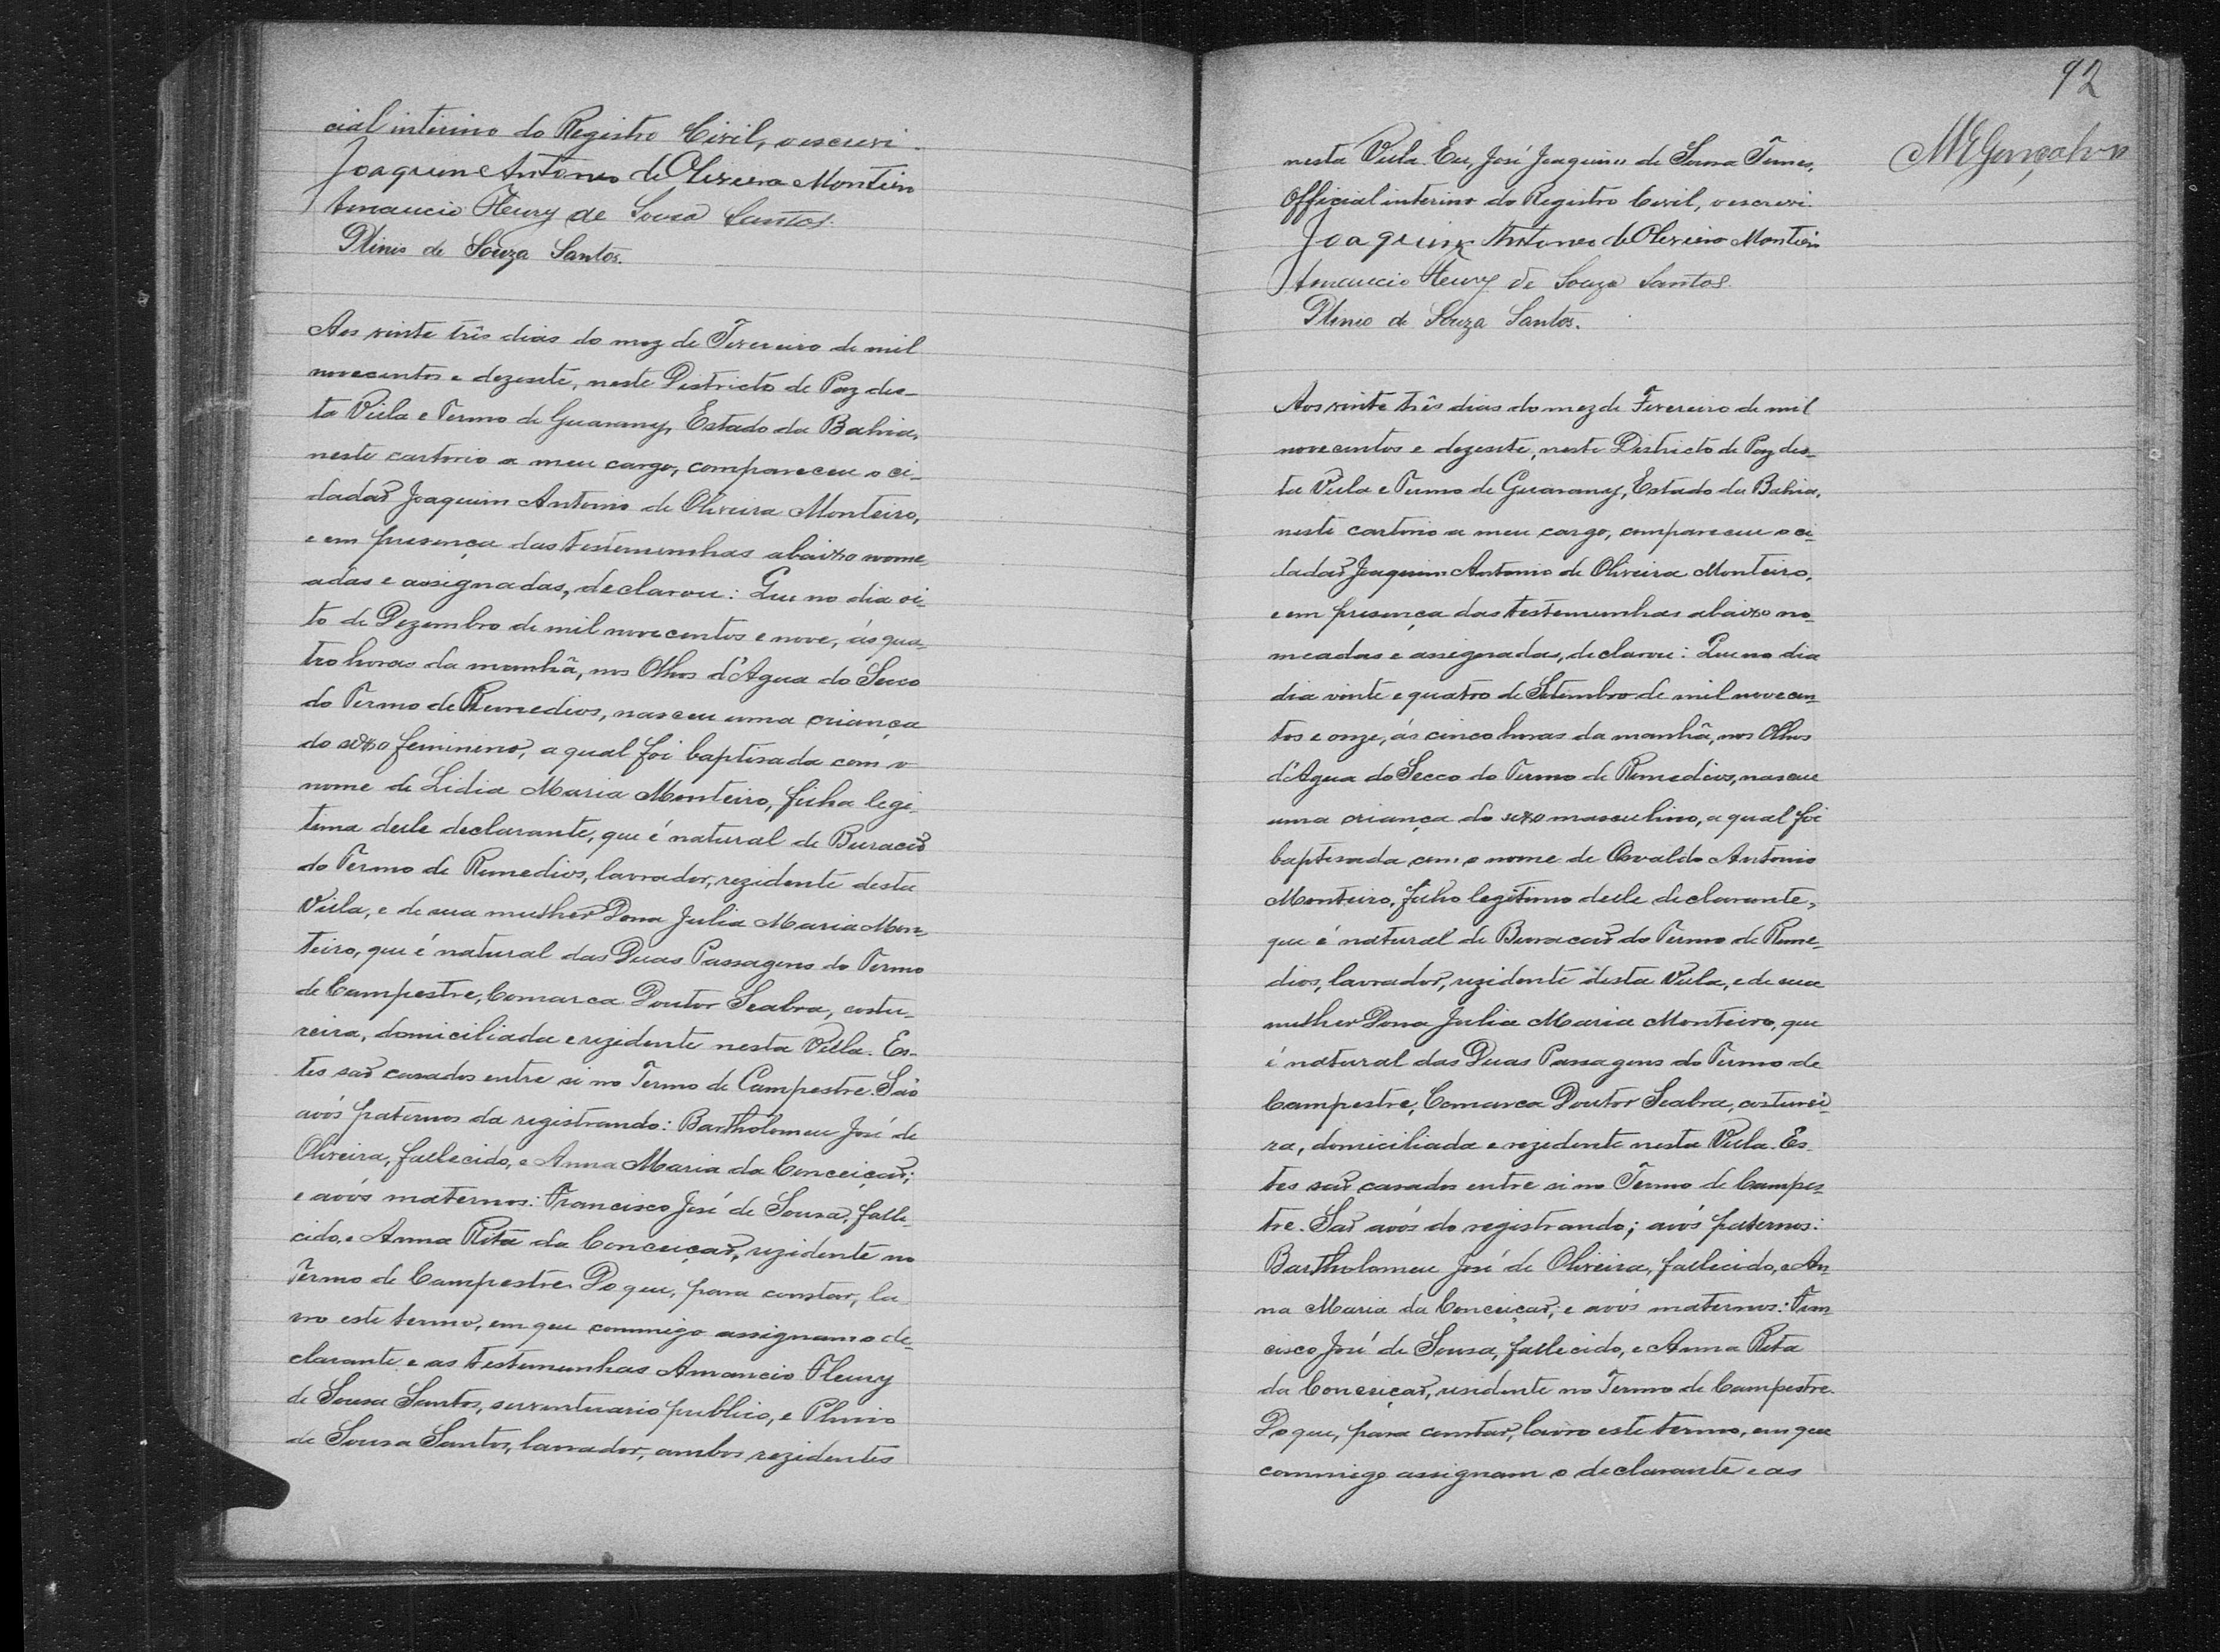 cial interino do Registro Civil, o escrevi.
Joaquim Antonio de Oliveira Monteiro
Amancio Fleury de Souza Santos.
Plinio de Souza Santos.
Aos vinte três dias do mez de Fevereiro de mil
novecentos e dezesete, neste Districto de Paz des-
ta Villa e Termo de Guarany, Estado da Bahia,
neste cartorio a meu cargo, compareceu o ci-
dadaõ Joaquim Antonio de Oliveira Monteiro,
e em presença das testemunhas abaixo nome-
adas e assignadas, declarou: Que no dia oi-
to de Dezembro de mil novecentos e nove, ás qua-
tro horas da manhã, nos Olhos d'Agua do Secco
do Termo de Remedios, nasceu uma criança
do sexo feminino, a qual foi baptisada com o
nome de Lidia Maria Monteiro, filha legi-
tima delle declarante, que é natural de Buracaõ
do Termo de Remedios, lavrador, rezidente desta
Villa, e de sua mulher Dona Julia Maria Mon-
teiro, que é natural das Duas Passagens do Termo
de Campestre, Comarca Doutor Seabra, costu-
reira, domiciliada e rezidente nesta Villa. Es-
tes saõ casados entre si no Termo de Campestre. Saõ
avós paternos da registrando: Bartholomeu José de
Oliveira, fallecido, e Anna Maria da Conceiçaõ;
e avós maternos: Francisco José de Sousa, falle-
cido, e Anna Rita da Conceiçaõ, rezidente no
Termo de Campestre. Do que, para constar, la-
vro este termo, em que commigo assignam o de-
clarante e as testemunhas Amancio Fleury
de Sousa Santos, serventuario publico, e Plinio
de Sousa Santos, lavrador, ambos rezidentes
92
MEGonçalves
nesta Villa. Eu, José Joaquim de Sousa
Official interino do Registro Civil, o escrevi.
Joaquim Antonio de Oliveira Monteiro
Amancio Fleury de Souza Santos.
Plinio de Souza Santos.
Aos vinte três dias do mez de Fevereiro de mil
novecentos e dezesete, neste Districto de Paz des-
ta Villa e Termo de Guarany, Estado da Bahia,
neste cartorio a meu cargo, compareceu o ci-
dadaõ Joaquim Antonio de Oliveira Monteiro,
e em presença das testemunhas abaixo no-
meadas e assignadas, declarou: Que no dia
dia vinte e quatro de Setembro de mil novecen-
tos e onze, ás cinco horas da manhã, nos Olhos
d'Agua do Secco do Termo de Remedios, nasceu
uma criança do sexo masculino, a qual foi
baptisada com o nome de Osvaldo Antonio
Monteiro, filho legitimo delle declarante,
que é natural de Buracaõ do Termo de Reme-
dios, lavrador, rezidente desta Villa, e de sua
mulher Dona Julia Maria Monteiro, que
é natural das Duas Passagens do Termo de
Campestre, Comarca Doutor Seabra, costurei-
ra, domiciliada e rezidente nesta Villa. Es-
tes saõ casados entre si no Termo de Campes-
tre. Saõ avós do registrando; avós paternos:
Bartholomeu José de Oliveira, fallecido, e An-
na Maria da Conceiçaõ; e avós maternos: Fran-
cisco José de Sousa, fallecido, e Anna Rita
da Conceiçaõ, residente no Termo de Campestre.
Do que, para constar, lavro este termo, em que
commigo assignam o declarante e as